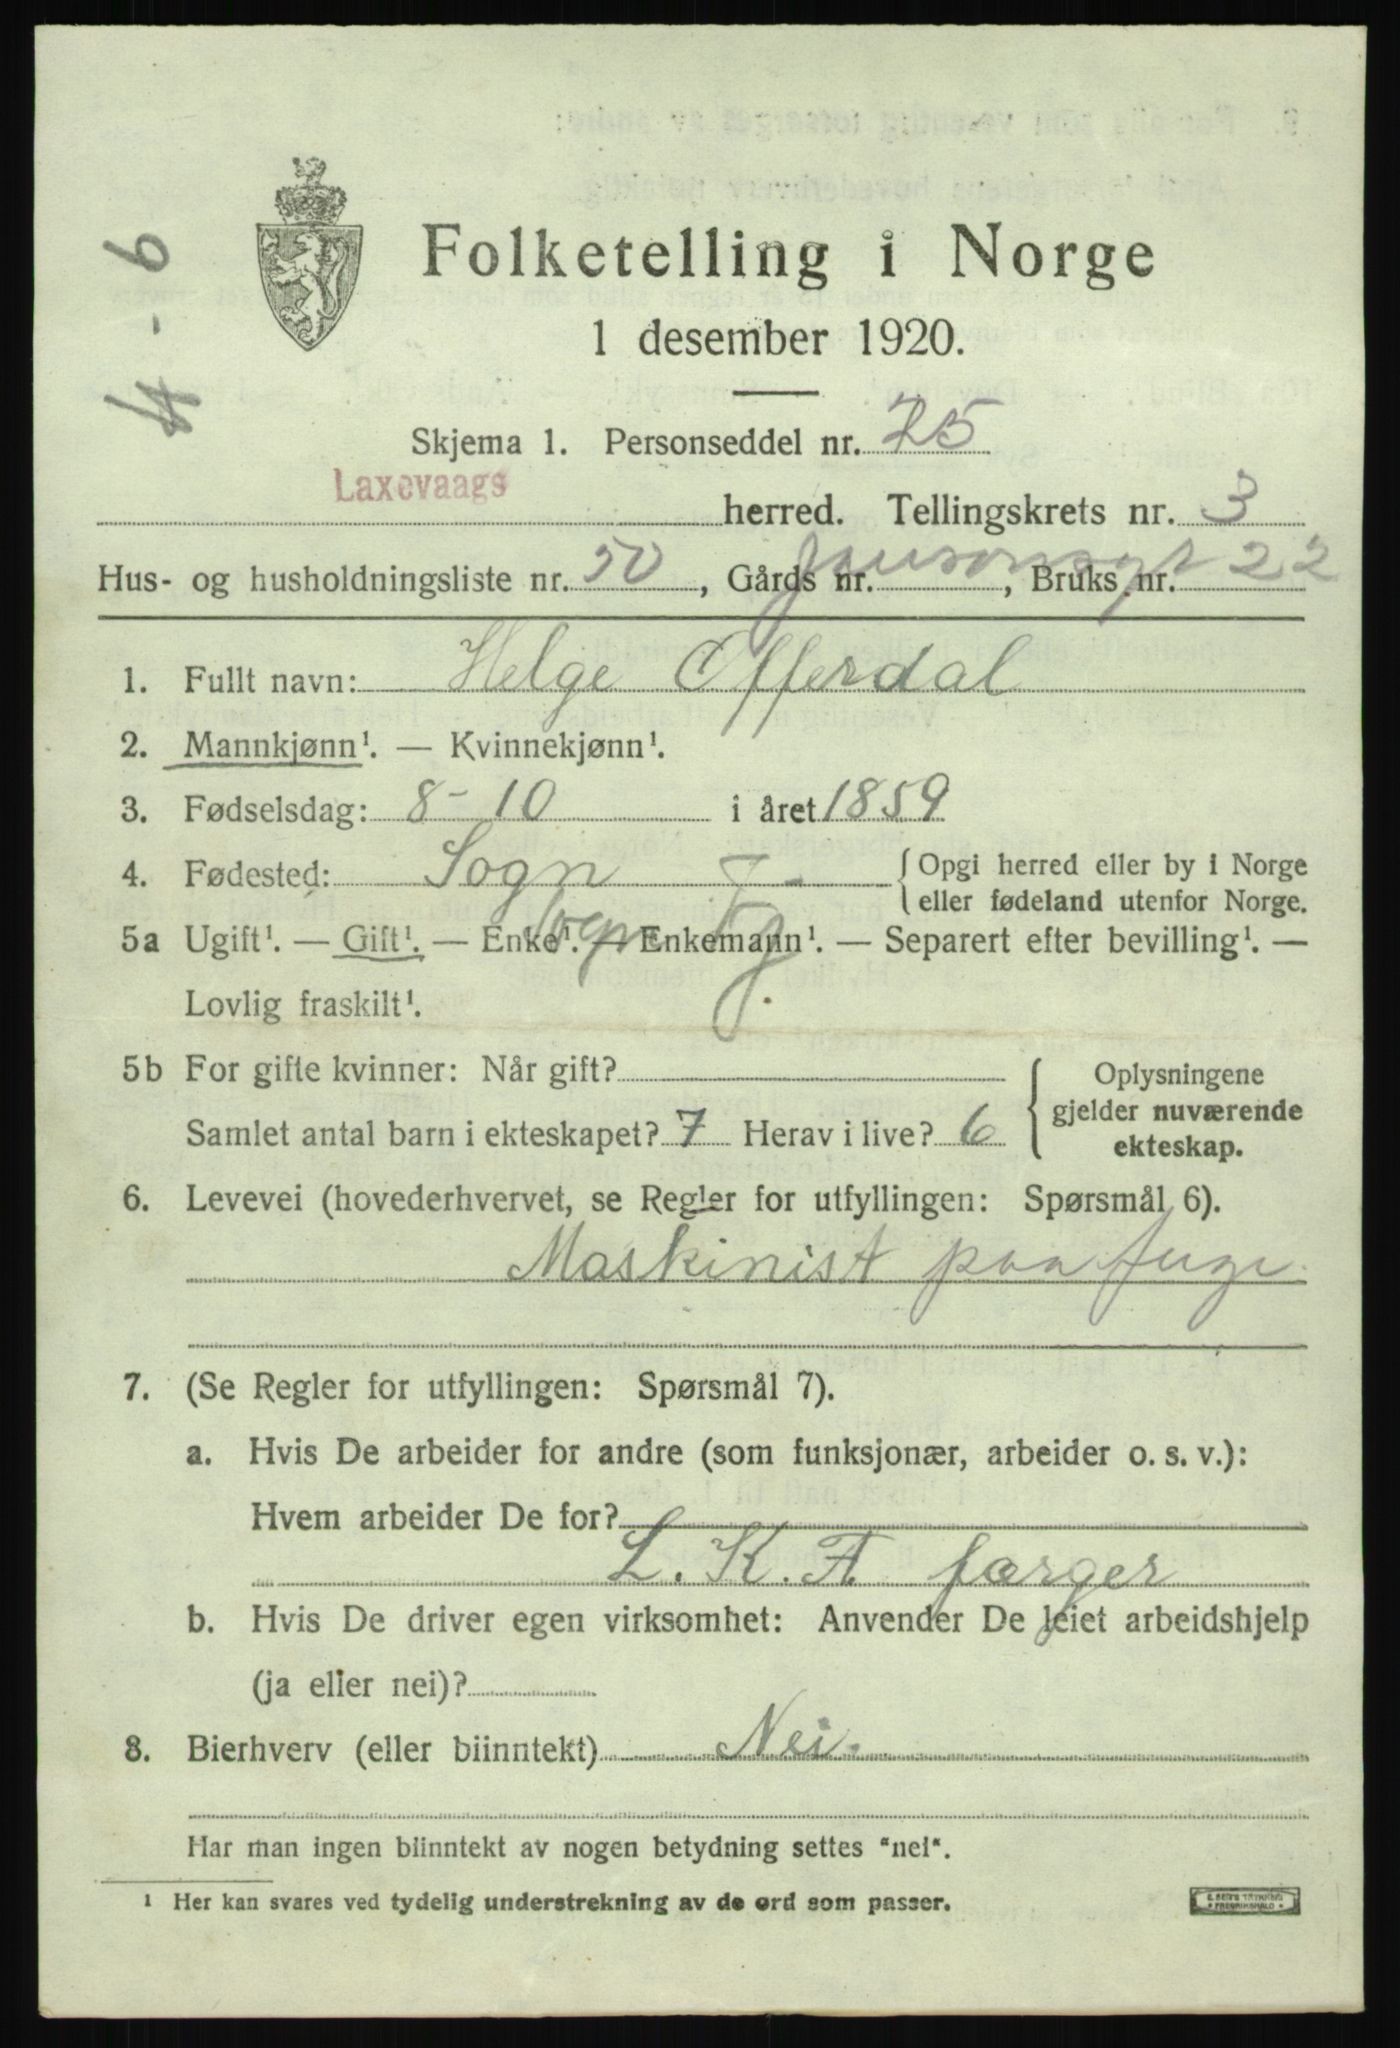 4-6
Folketelling i Norge
1 desember 1920.
Skjema 1. Personseddel nr. 75
Laxevaags herred. Tellingskrets nr. 3
Hus- og husholdningsliste nr. 50, Gårds nr. , Bruks nr. 22
1. Fullt navn: Helge Offerdal
2. Mannkjønn¹. — Kvinnekjønn¹.
3. Fødselsdag: 8-10 i året 1859
4. Fødested: Sogn {Opgi herred eller by i Norge
eller fødeland utenfor Norge.
Sogn Fj.
5a Ugift¹. — Gift¹. — Enke¹. — Enkemann¹. — Separert efter bevilling¹. —
Lovlig fraskilt¹.
5b For gifte kvinner: Når gift?
Samlet antal barn i ekteskapet? 7 Herav i live? 6
{Oplysningene
gjelder nuværende
ekteskap.
6. Levevei (hovederhvervet, se Regler for utfyllingen: Spørsmål 6).
Maskinist paa
7. (Se Regler for utfyllingen: Spørsmål 7).
a. Hvis De arbeider for andre (som funksjonær, arbeider o. s. v.):
Hvem arbeider De for?
L. K. F. færger
b. Hvis De driver egen virksomhet: Anvender De leiet arbeidshjelp
(ja eller nei)?
8. Bierhverv (eller biinntekt) Nei.
Har man ingen biinntekt av nogen betydning settes "nei".
¹ Her kan svares ved tydelig understrekning av de ord som passer.